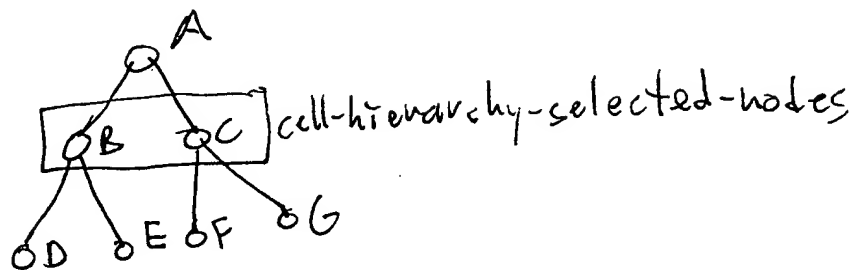 A
B C cell-hierarchy-selected-nodes
D E F G